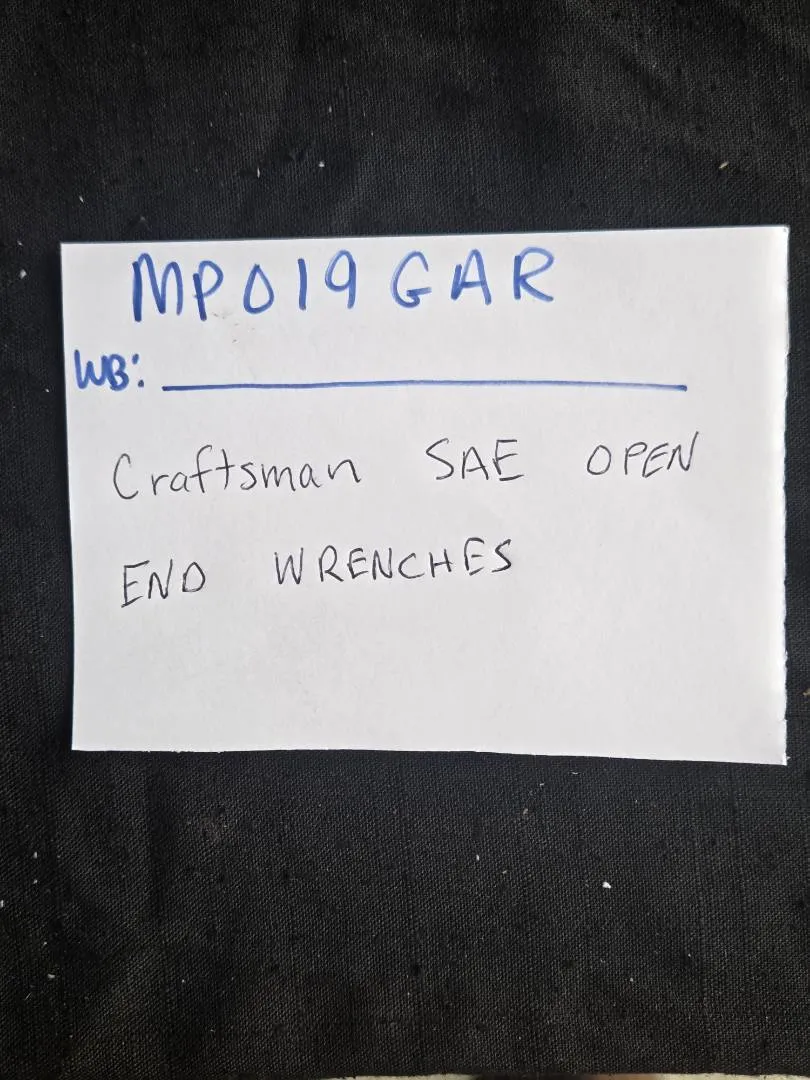 MP019 GAR
WB:
Craftsman SAE OPEN
END WRENCHES